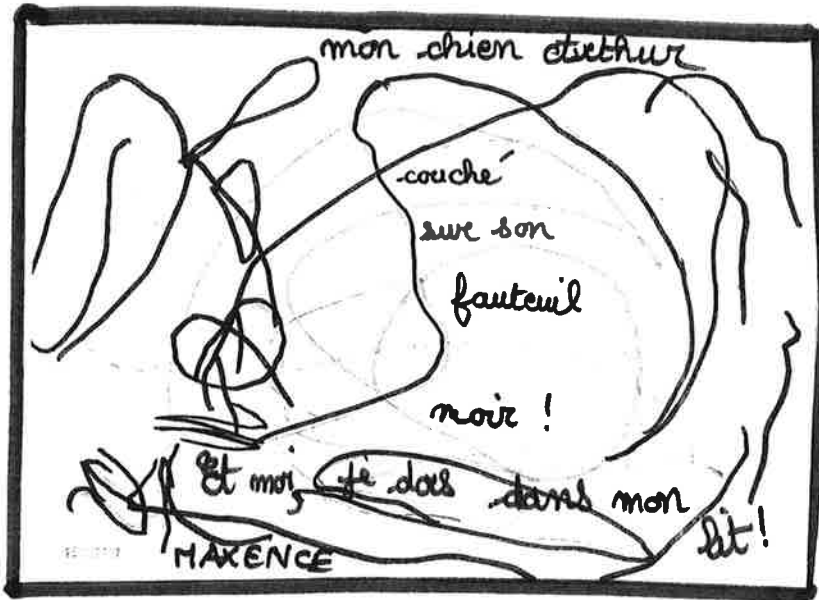 mon chien Arthur
couché
sur son
fauteuil
noir !
Et moi, je dors dans mon
lit !
MAXENCE